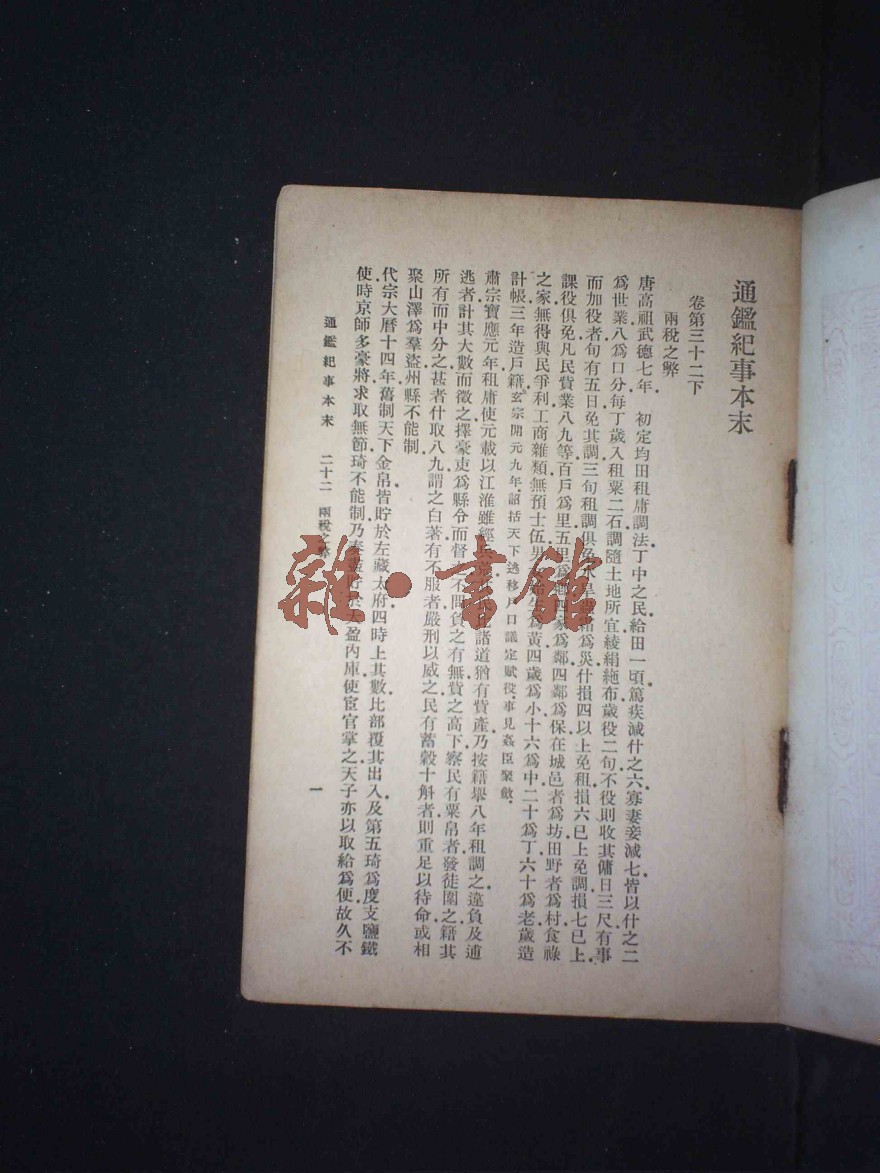 通鑑紀事本末
卷第三十二下
兩稅之弊
唐高祖武德七年 初定均田租庸調法丁中之民給田一頃篤疾減什之六寡妻妾減七皆以什之二
爲世業八爲口分每丁歲入租粟二石調隨土地所宜綾絹絁布歲役二旬不役則收其傭日三尺有事
而加役者旬有五日免其調三旬租調俱免水旱爲災什損四以上免租損六已上免調損七已上
課役俱免凡民貲業八九等百戶爲里五里爲四家爲鄰四鄰爲保在城邑者爲坊田野者爲村食祿
之家無得與民爭利工商雜類無預士伍男爲黃四歲爲小十六爲中二十爲丁六十爲老歲造
計帳三年造戶籍玄宗開元九年詔括天下逃移戶口議定賦役事見姦臣聚斂
肅宗寶應元年租庸使元載以江淮雖經諸道猶有貲產乃按籍舉八年租調之違負及逋
逃者計其大數而徵之擇豪吏爲縣令而督不問負之有無貲之高下察民有粟帛者發徒圍之籍其
所有而中分之甚者什取八九謂之白著有不服者嚴刑以威之民有蓄穀十斛者則重足以待命或相
聚山澤爲羣盜州縣不能制
代宗大曆十四年舊制天下金帛皆貯於左藏太府四時上其數比部覆其出入及第五琦爲度支鹽鐵
使時京師多豪將求取無節琦不能制乃奏盈內庫使宦官掌之天子亦以取給爲便故久不
通鑑紀事本末 二十二 兩稅之弊 一
雜·書館